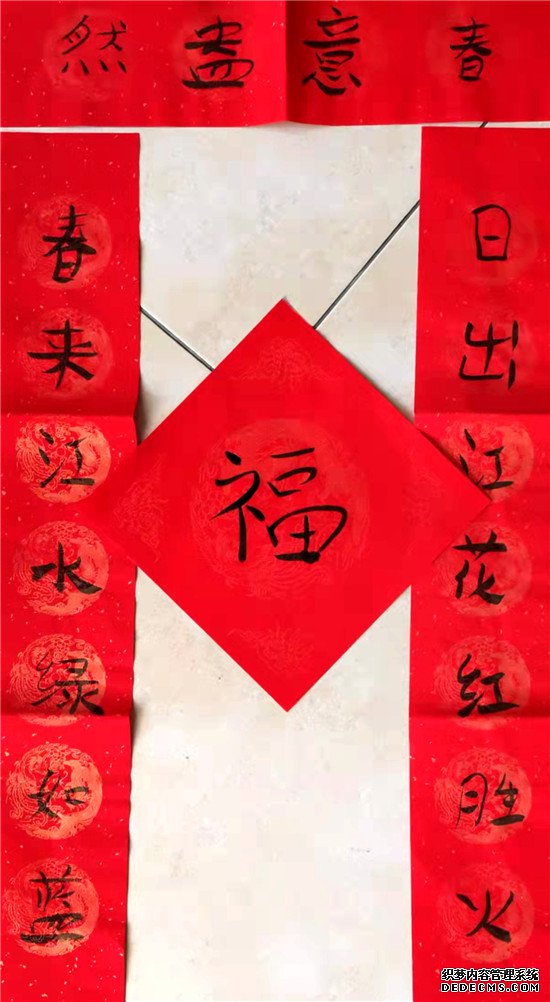 春意盎然
日出江花红胜火
春来江水绿如蓝
福
织梦内容管理系统
DEDECMS.COM